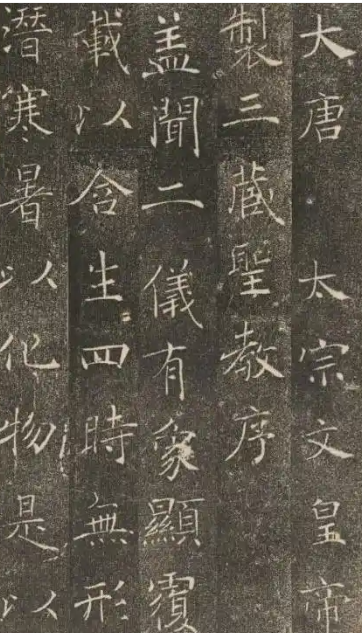 大唐太宗文皇帝
製三藏聖教序
盖聞二儀有象顯覆
載以含生四時無形
潛寒暑以化物是以